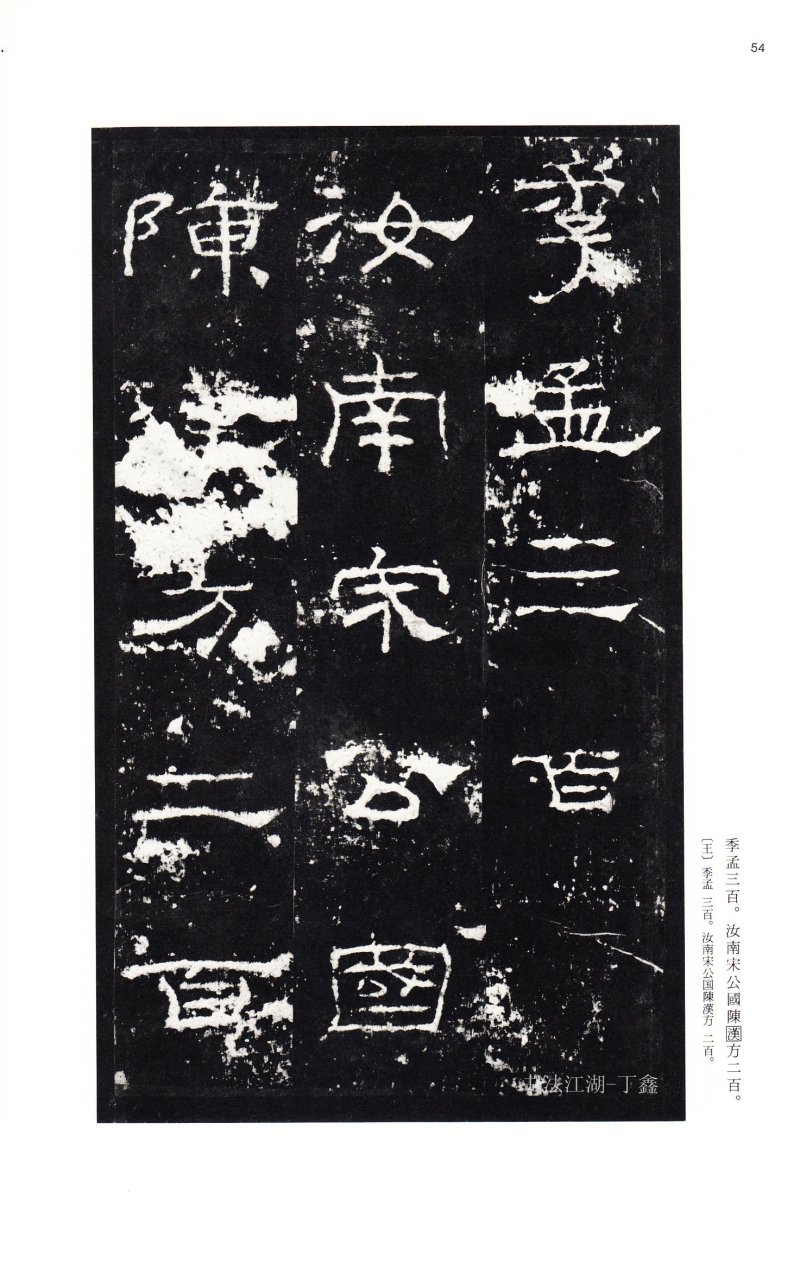 54
季孟三百
汝南宋公國
陳漢方二百
季孟三百。汝南宋公國陳漢方二百。
〔王〕季孟 三百。汝南宋公国陳漢方 二百。
法江湖-丁鑫